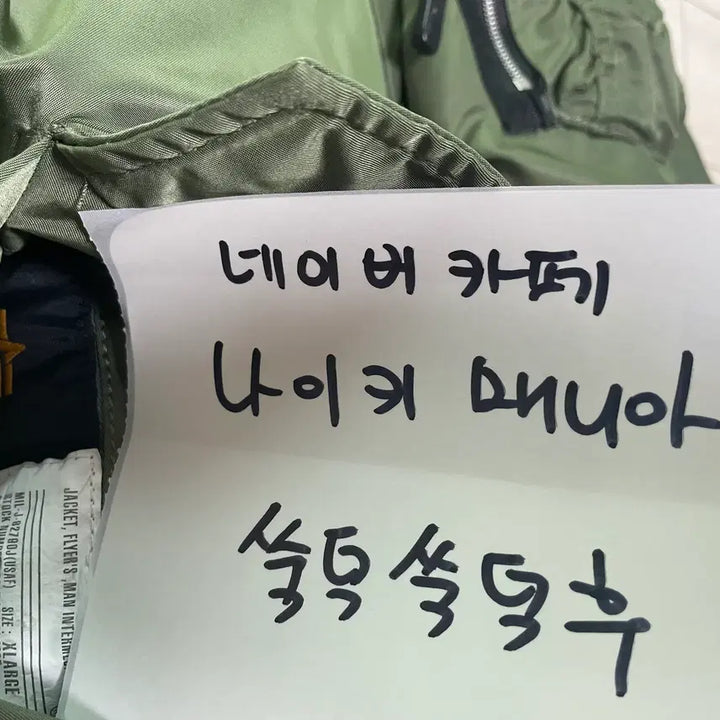 네이버 카페
나이키 매니아
쑥덕쑥덕후
JACKET, FLYER'S, MAN INTERM
MIL-J-82790J(USAF) SIZE: XLARGE
STOCK